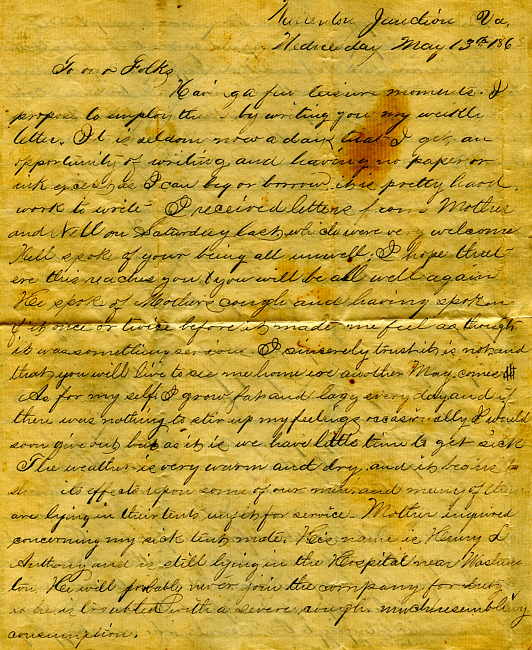 Junction, Va,
Wednesday May 13th 186
To our Folks
Having a few leisure moments. I
propose to employ them by writing you my weekly
letter. It is seldom now a days that I get an
opportunity of writing and having no paper or
ink except as I can beg or borrow. it is pretty hard
work to write I received letters from Mother
and Nell on Saturday last which were very welcome
Nell spoke of your being all unwell; I hope that
ere this reaches you, you will be all well again
He spoke of Mother's cough and having spoken
of it once or twice before it made me feel as though
it was something serious I sincerely trust it is not and
that you will live to see me home ere another May comes
As for my self I grow fat and lazy every day and if
there was nothing to stir up my feelings occasionally I would
soon give out but as it is we have little time to get sick
The weather is very warm and dry, and it begins to
show its effects upon some of our men, and many of them
are lying in their tents unfit for service. Mother inquired
concerning my sick tent mate. His name is Henry L
Anthony and is still lying in the Hospital near Washin
ton. He will probably never join the company for duty
as he is troubled with a severe cough much resembling
consumption.